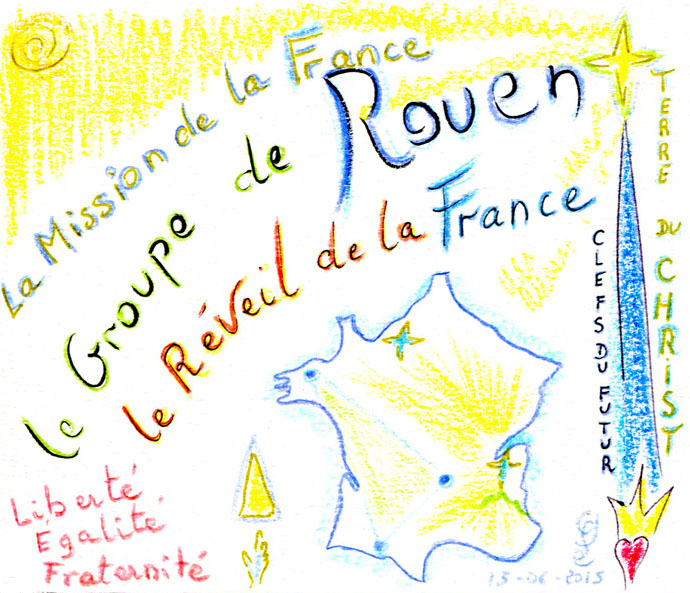 La Mission de la France
le Groupe de Rouen
le Réveil de la France
TERRE DU CHRiST
CLEFS DU FUTUR
Liberté,
Égalité,
Fraternité
15-06-2015